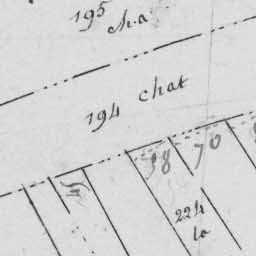 195
cha
194 chat
98 70
224
la